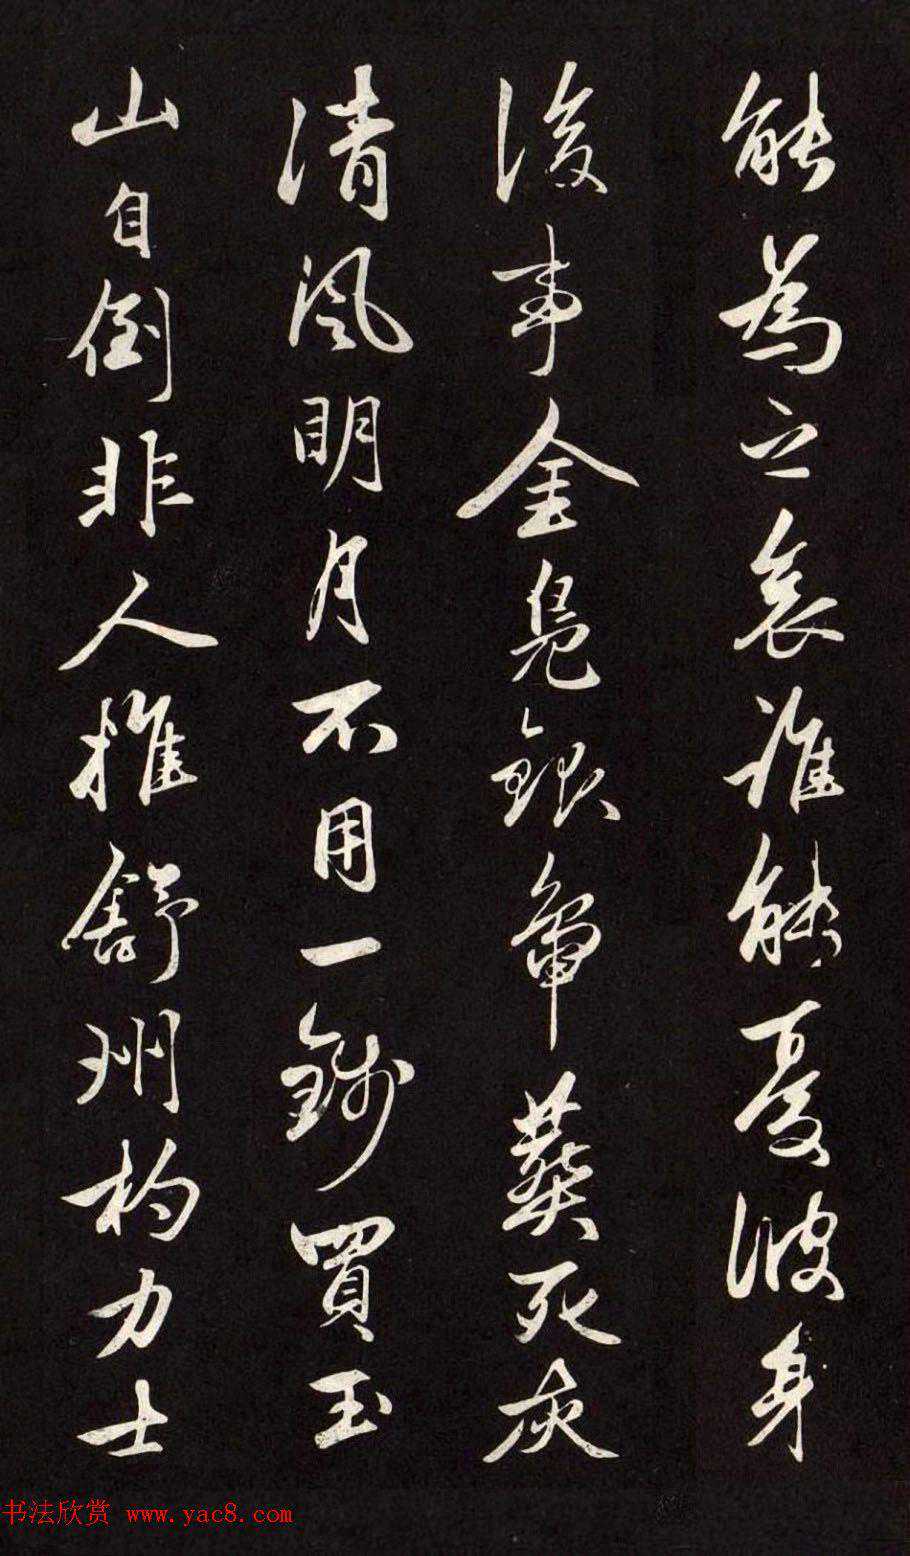 能為之哀誰能憂彼身
後事金鳧銀葬死灰
清風明月不用一錢買玉
山自倒非人推舒州杓力士
书法欣赏 www.yac8.com